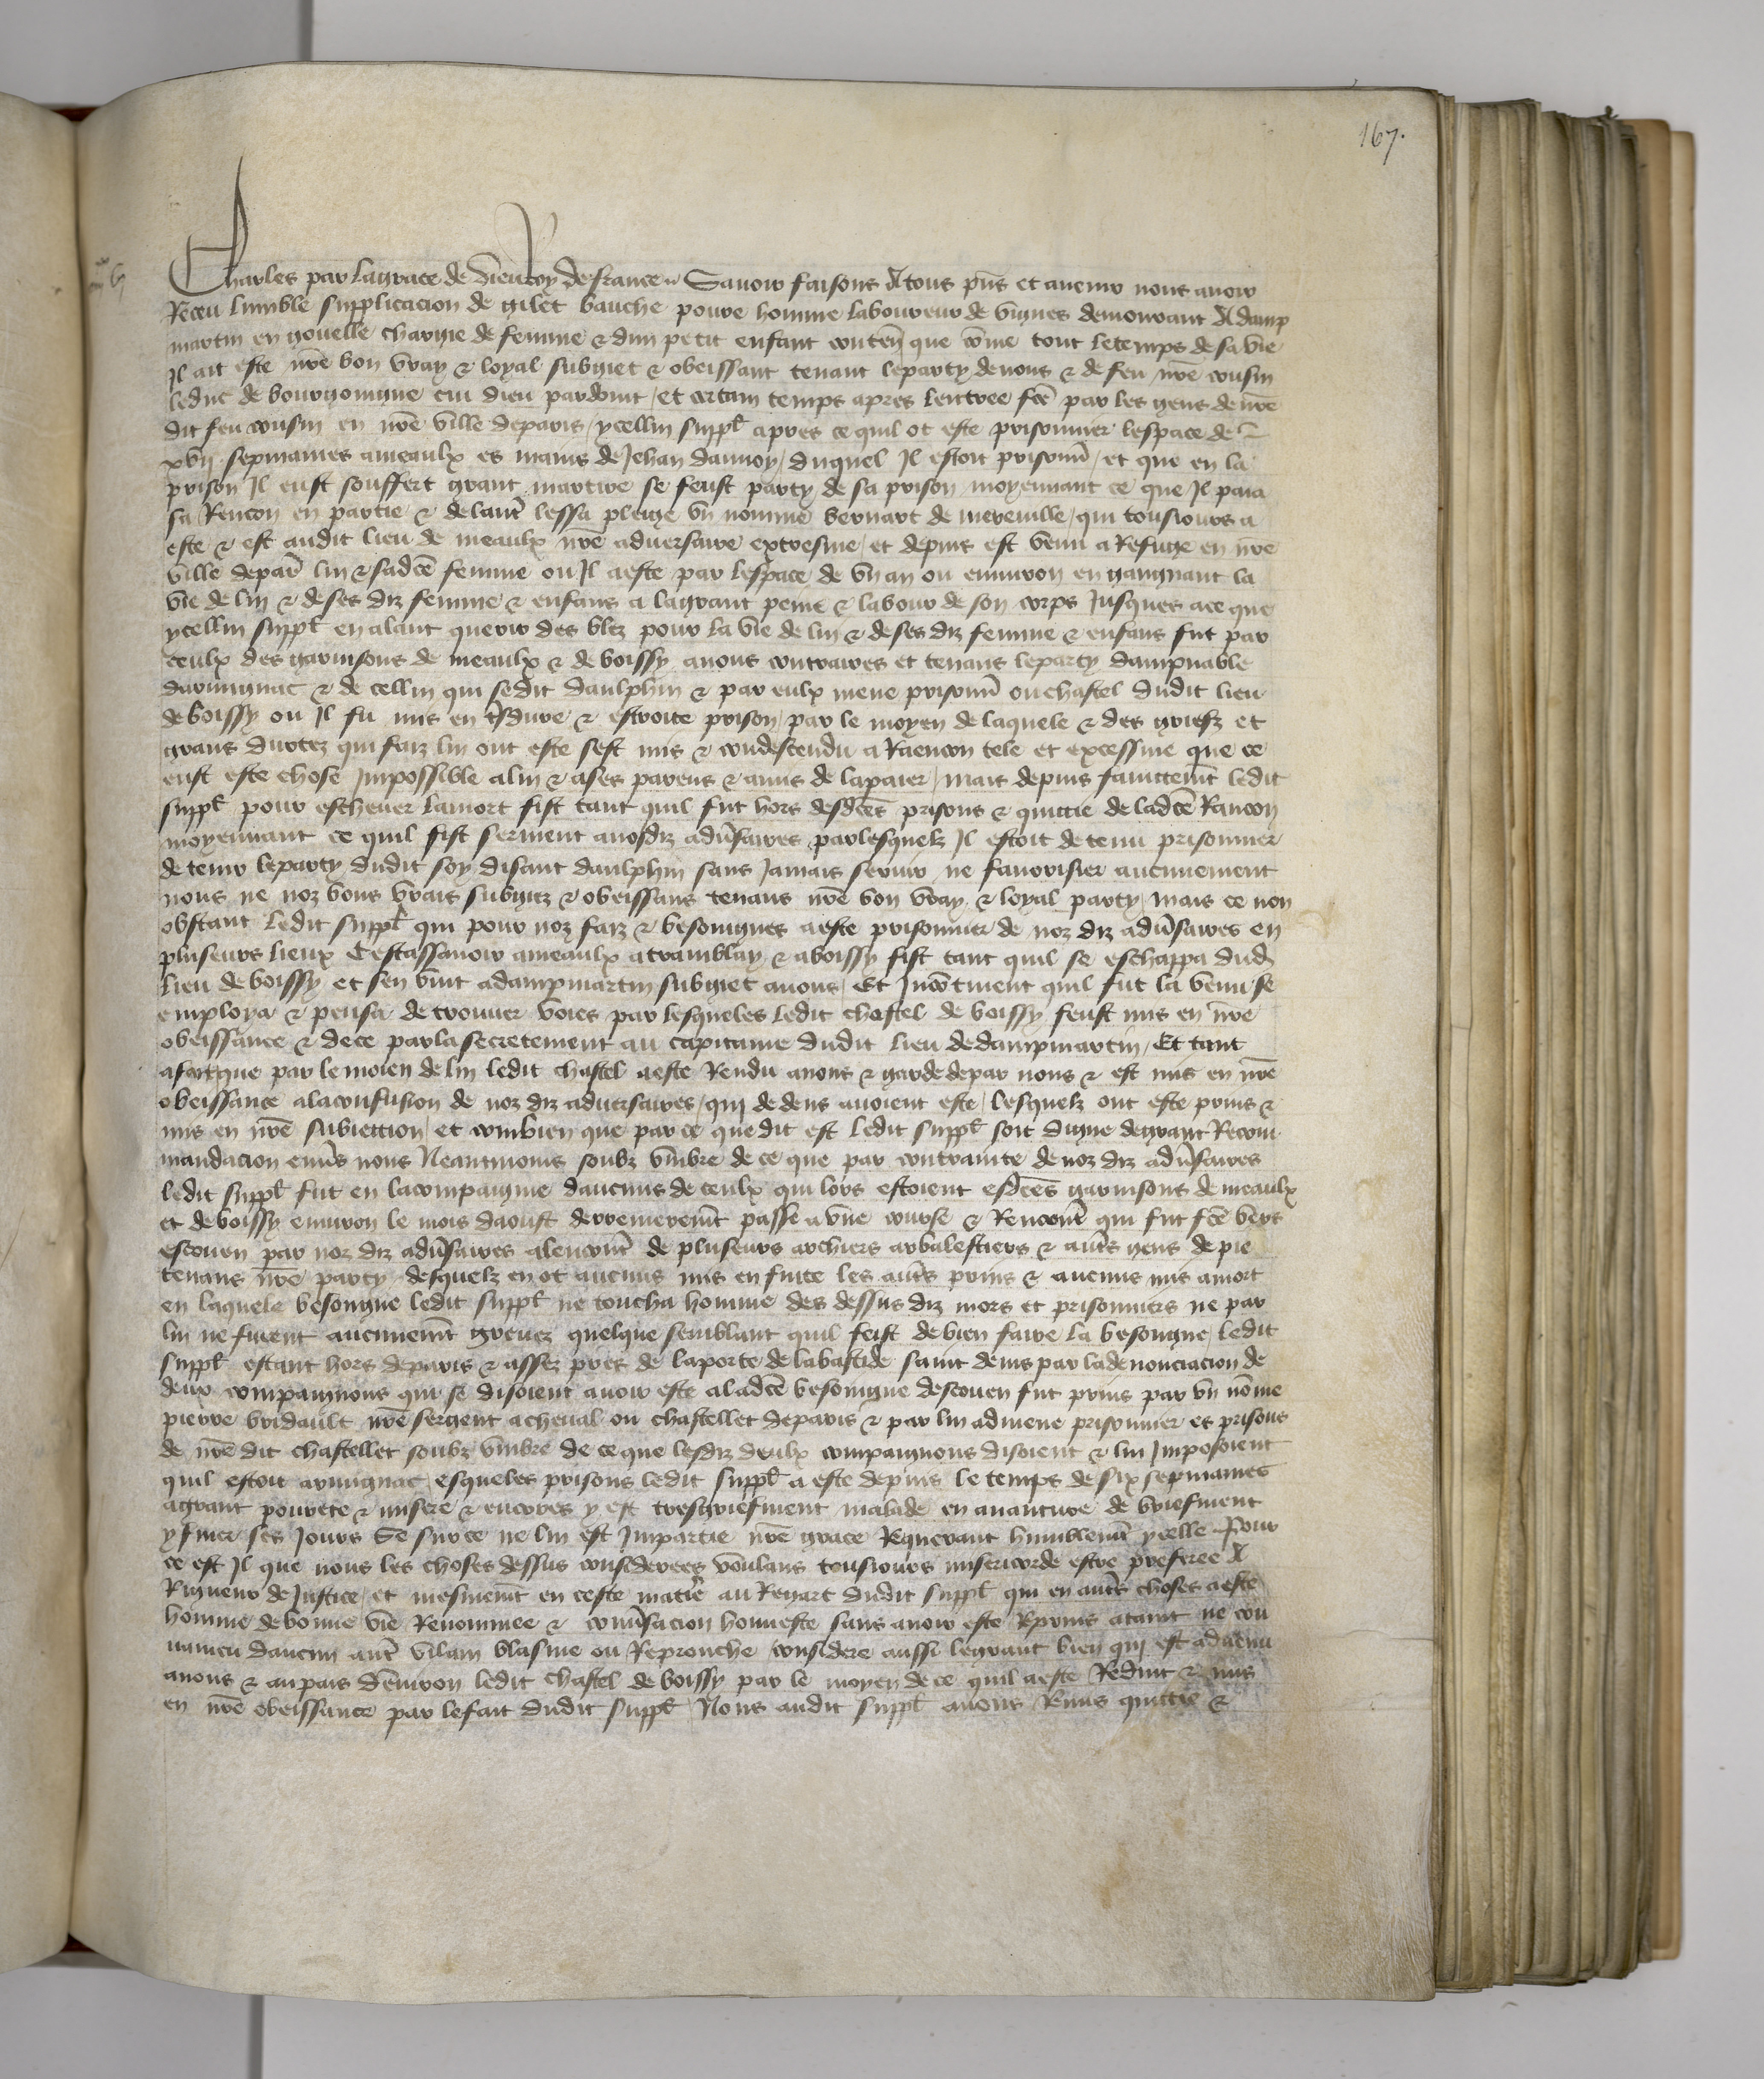 167.
Charles par la grace de dieu Roy de france Sauoir faisons A tous pñs et auenir nous auoir
Receu lumble supplicacion de gilet bauche poure homme laboureur de vignes demourant A damp
martin en gouelle chargie de femme & dun petit enfant conteñ que cõme tout letemps de sa vie
Il ait este nr̃e bon vray & loyal subgiet & obeissant tenant leparty denous & de feu nr̃e cousin
leduc de bourgoingne cui dieu pardoint / et certain temps apres lentree fcẽ par les gens denr̃e
dit feu cousin en nr̃e ville deparis / ycellui supplt̃ apres ce quil ot este prisonnier lespace de
xvij sepmaines ameaulx es mains de Jehan daunoy / duquel Il estoit prisonñ / et que en la
prison Il eust souffert grant martire se feust party de sa prison moyennant ce que Il paia
sa Rencon en partie & de lautr̃ lessa pleige vn nomme bernart de mereuille / qui tousiours a
este & est audit lieu de meaulx nr̃e aduersaire extresme / et depuis est venu a Refuge en nr̃e
ville depar̃ lui & sadcẽ femme ou Il aeste par lespace de vn an ou enuiron en gaignant la
vie de lui & de ses diz femme & enfans a lagrant peine & labour de son corps Jusques ace que
ycellui supplt̃ en alant querir des blez pour la vie de lui & deses diz femme & enfans fut par
ceulx des garnisons de meaulx & de boissy anous contraires et tenans leparty dampnable
darmignac & de cellui qui sedit daulphin & par eulx mene prisonñ ou chastel dudit lieu
de boissy ou Il fu mis en tr̃sdure & estroite prison / par le moyen de laquele & des griefz et
grans durtez qui faiz lui ont este sest mis & condescendu a Raencon tele et excessiue que ce
eust este chose Impossible alui & ases parens & amis de lapaier / mais depuis faintemt̃ ledit
supplt̃ pour escheuer lamort fist tant quil fut hors desdcẽs prisons & quittie de ladcẽ Rancon
moyennant ce quil fist serment anosdiz adũsaires parlesquelz Il estoit detenu prisonnier
de tenir leparty dudit soy disant daulphin sans Jamais seruir ne fauorisier aucunement
nous ne noz bons vrais subgiez & obeissans tenans nr̃e bon vray & loyal party / mais ce non
obstant ledit supplt̃ qui pour noz faiz & besoingnes aeste prisonnier de noz diz adũsaires en
pluseurs lieux Cestassauoir ameaulx atramblay & aboissy fist tant quil se eschappa dud
lieu de boissy et sen vint adampmartin subgiet anous / Et Incõtinent quil fut la venu se
employa & pensa de trouuer voies par lesqueles ledit chastel de boissy feust mis en nr̃e
obeissance & dece parla secretement au capitaine dudit lieu dedampmartin / Et tant
afait que par le moien de lui ledit chastel aeste Rendu anous & garde depar nous & est mis en nr̃e
obeissance alaconfusion de noz diz aduersaires / qui dedens auoient este / lesquelz ont este prins &
mis en nr̃e subiection / et combien que par ce que dit est ledit supplt̃ soit digne degrant Recom
mandacion enũs nous Neantmoins soubz vmbre de ce que par contrainte denoz diz adũsaires
ledit supplt̃ fut en lacompaignie daucuns de ceulx qui lors estoient esdcẽs garnisons de meaulx
et deboissy enuiron le mois daoust derrenieremt̃ passe a vne course & Rencontr̃ qui fut fcẽ vers
escouen par noz diz adũsaires alencontr̃ de pluseurs archiers arbalestiers & autr̃s gens de pie
tenans nr̃e party / desquelz en ot aucuns mis en fuite les autr̃s prins & aucuns mis amort
en laquele besongne ledit supplt̃ ne toucha homme des dessus diz mors et prisonniers ne par
lui ne furent aucunemt̃ greuez quelque semblant quil feist de bien faire la besongne / ledit
supplt̃ estant hors deparis & assez pres de laporte de labastide saint denis par ladenonciacion de
deux compaignons qui se disoient auoir este aladcẽ besoingne descouen fut prins par vn nõme
pierre bridault nr̃e sergent acheual ou chastellet deparis & par lui admene prisonnier es prisons
de nr̃e dit chastellet soubz vmbre de ce que lesdiz deulx compaignons disoient & lui Imposoient
quil estoit armignac / esqueles prisons ledit supplt̃ a este depuis le temps de six sepmaines
agrant pourete & misere & encores y est tresgriefment malade en auanture de briefment
y finer ses Jours Se surce ne lui est Impartie nr̃e grace Requerant humblemt̃ ycelle Pour
ce est Il que nous les choses dessus considerees voulans tousiours misericorde estre preferee A
Rigueur de Justice / et mesmemt̃ en ceste matir̃e au Regart dudit supplt̃ qui en autr̃s choses aeste
homme debonne vie Renommee & conũsacion honneste sans auoir este Reprins ataint ne con
uaincu daucun autr̃ vilain blasme ou Reprouche considere aussi legrant bien qui est aduenu
anous & aupais denuiron ledit chastel de boissy par le moyen dece quil aeste Reduit & mis
en nr̃e obeissance par lefait dudit supplt̃ / Nous audit supplt̃ auons Remis quittie &